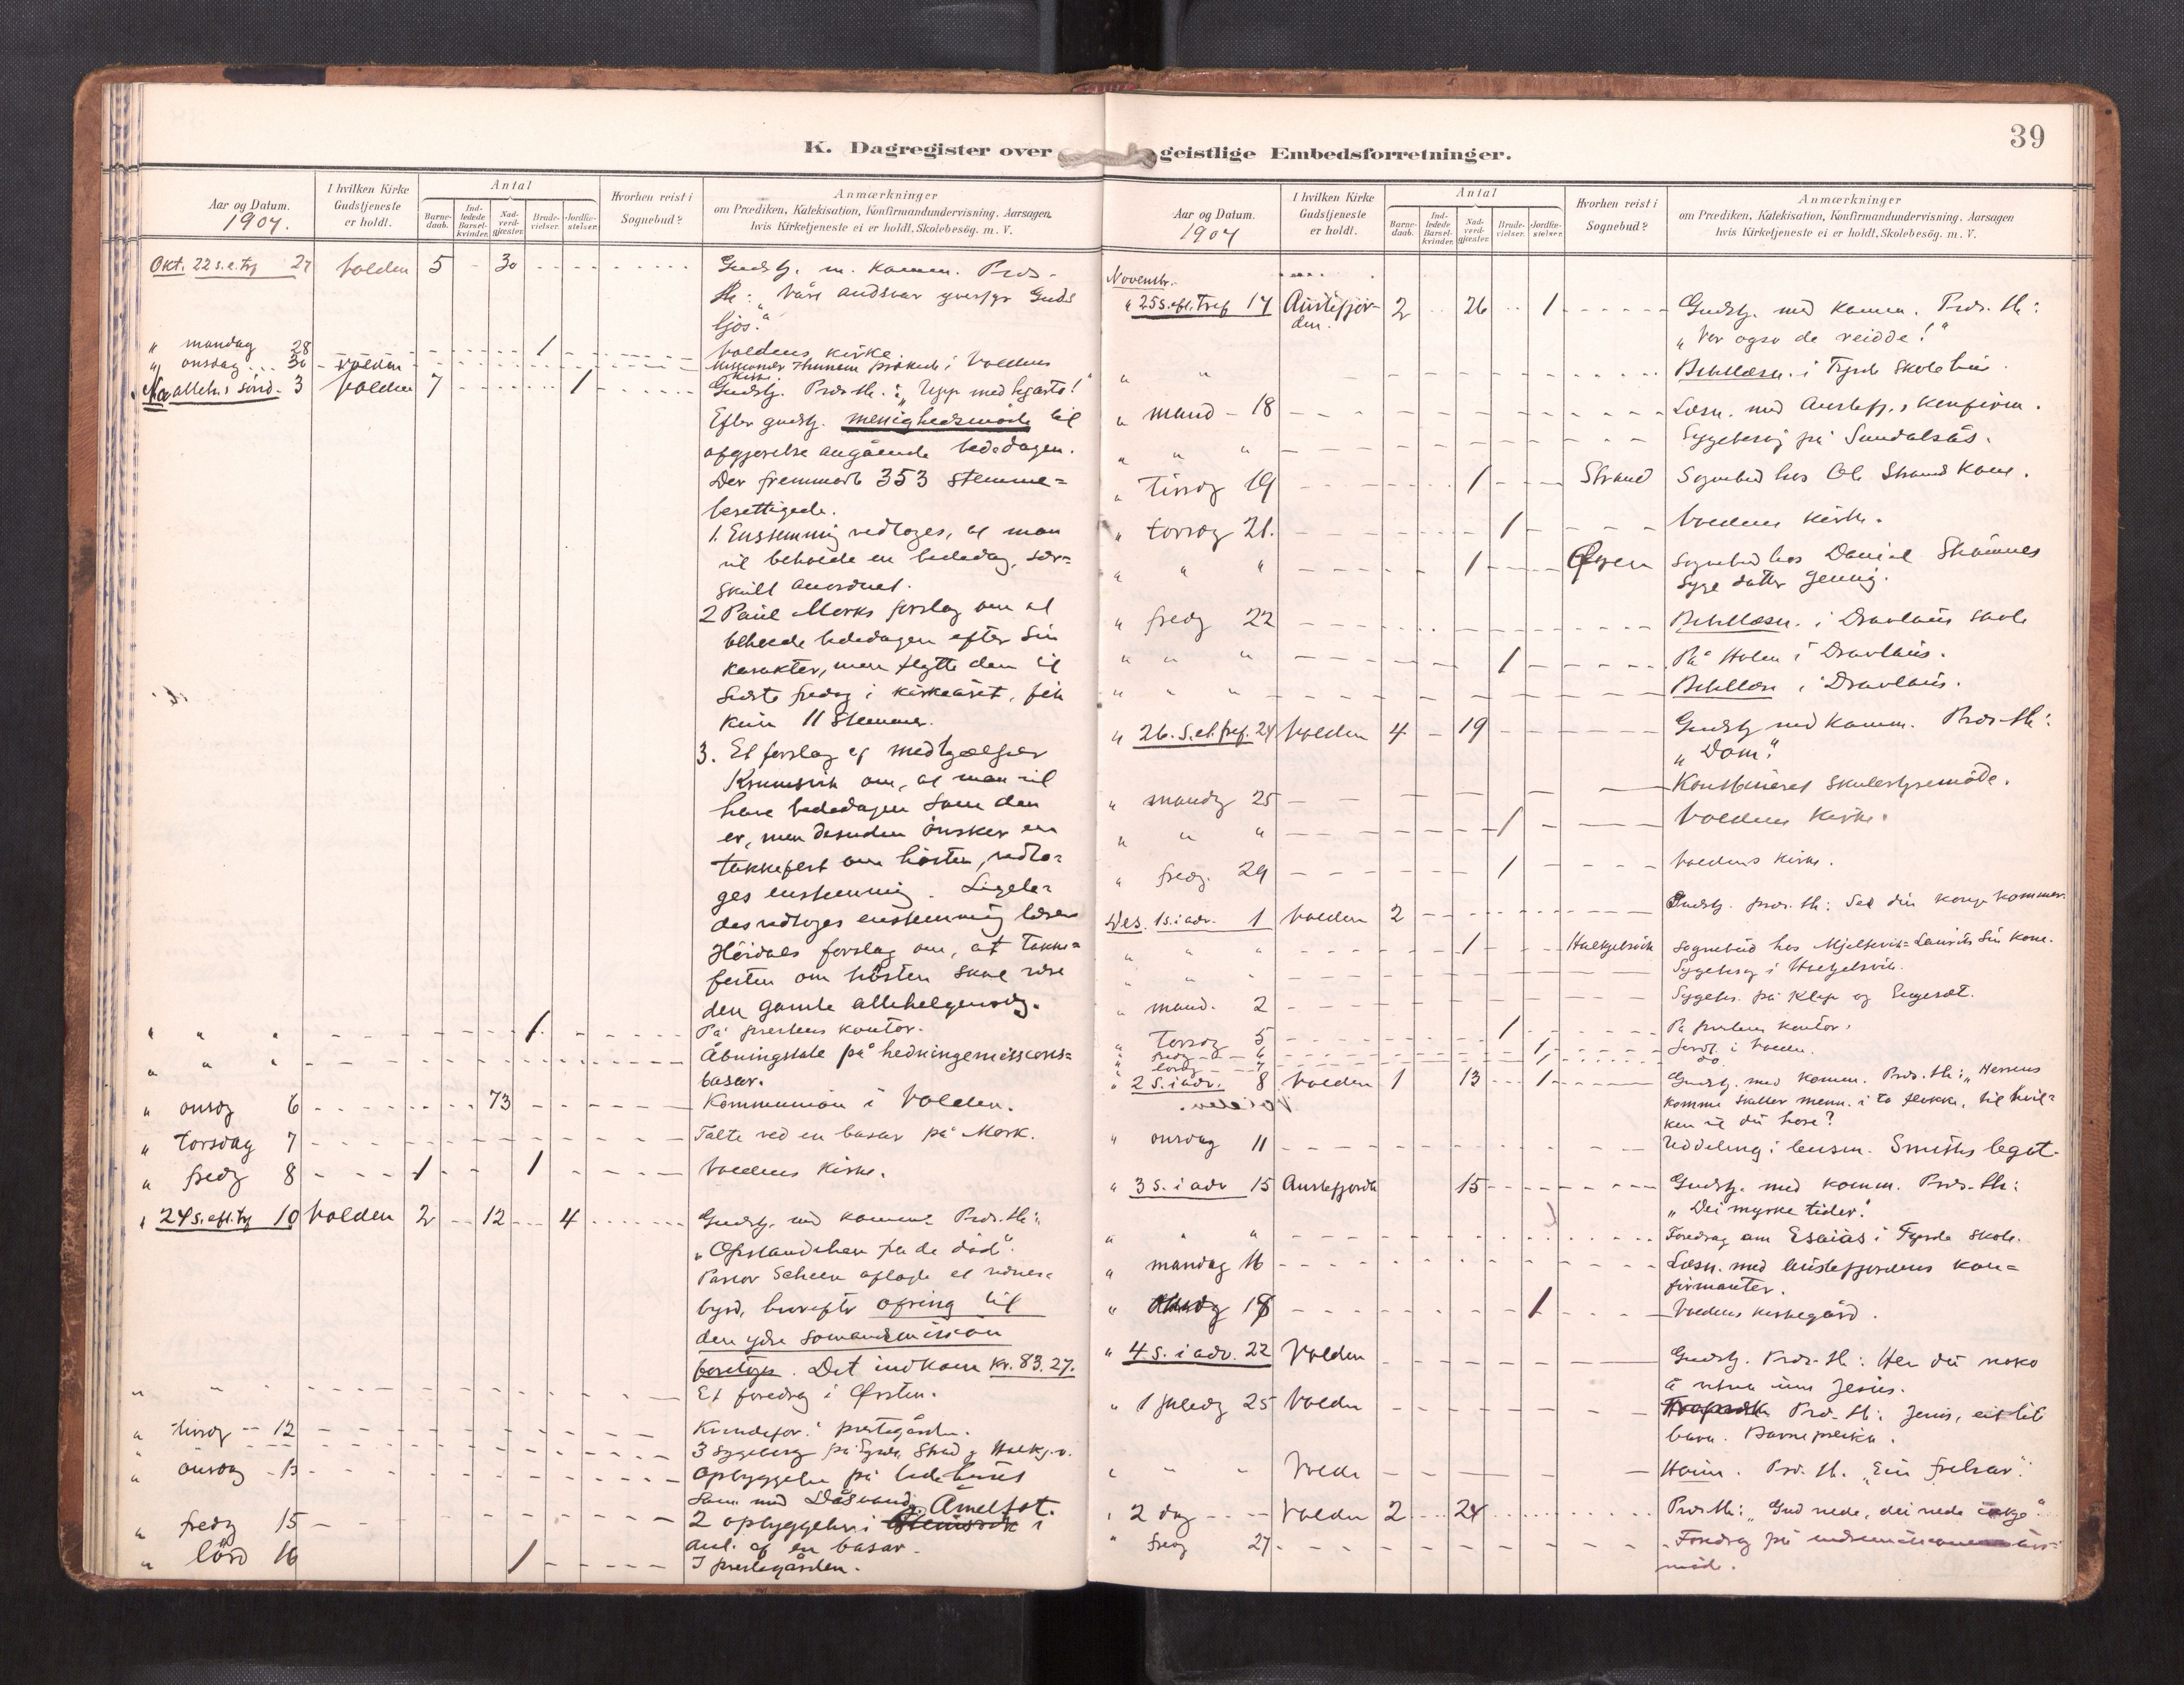 39
K. Dagregister over geistlige Embedsforretninger.
Aar og Datum.
1907.
I hvilken Kirke
Gudstjeneste
er holdt.
Antal
Barne-
daab.
Ind-
ledede
Barsel-
kvinder.
Nad-
verd-
gjæster.
Brude-
vielser.
Jordfæ-
stelser.
Hvorhen reist i
Sognebud?
Anmærkninger
om Prædiken, Katekisation, Konfirmandundervisning. Aarsagen
hvis Kirketjeneste ei er holdt, Skolebesøg. m. V.
Okt. 22 s.e.tr 27 Volden 5 - 30 Gudstj. m. komm. Præd.
th: „Vårt andsvar yverfyr Guds
ljos."
" mandag 28 1 Voldens kirke.
" onsdag 30 Volden Missionær præket i Voldens
kirke.
Nov. alleh. sönd. 3 Volden 7 1 Gudstj. Præd. th.: „Upp med hjarto!"
Efter gudstj. menighedsmöde til
afgjörelse angående bededagen.
Der fremmødt 353 stemme=
berettigede.
1. Enstemmig vedtoges, at man
vil beholde en bededag, sær=
skilt anordnet.
2 Paul Morks forslag om at
beholde bededagen efter sin
karakter, men flytte den til
sidste fredag i kirkeåret, fik
kun 11 stemmer.
3. Et forslag af medhjælper
Krumsvik om, at man vil
have bededagen som den
er, men desuden önsker en
takkefest om hösten, vedto=
ges enstemmig. Ligele=
des vedtoges enstemmig lærer
Höidals forslag om, at takke=
festen om hösten skal være
den gamle allehelgensdag.
" " " 1 På prestens kontor.
" " " Åbningstale på hedningemissions=
basar.
" onsdg 6 73 Kommunion i Volden.
" Torsdag 7 Talte ved en basar på Mork.
" fredg 8 1 1 Voldens kirke.
" 24 s.eft.tr 10 Volden 2 12 4 Gudstj. med komm. Præd. th:
„Opstandelsen fra de död".
Pastor Scheen aflagde et vidnes=
byrd, hvorefter ofring til
den ydre sömandsmission
foretoges. Det indkom kr. 83.27.
" " Et foredrag i Ørsten.
" tirsdg 12 Kvindefor. i prestegården.
3 sygebesøg på
" onsdag 13 Opbyggelse på bedehuset
sam. med Dåsvand.
" fredg 15 2 opbyggelser i Åmelfot. i
anl. af en basar.
" lörd 16 1 I prestegården.
Aar og Datum.
1907
I hvilken Kirke
Gudstjeneste
er holdt.
Antal
Barne-
daab.
Ind-
ledede
Barsel-
kvinder.
Nad-
verd-
gjæster.
Brude-
vielser.
Jordfæ-
stelser.
Hvorhen reist i
Sognebud?
Anmærkninger
om Prædiken, Katekisation, Konfirmandundervisning. Aarsagen
hvis Kirketjeneste ei er holdt, Skolebesøg. m. V.
Novembr.
" 25 s.eft. Tref 17 Austefjor-
den. 2 26 1 Gudstj. med komm. Præd. th:
„Ver ogso de reidde!"
" " Bibellæsn. i Fyrde skolehus.
" mand - 18 Læsn. med Austefj.s konfirm.
" " " Sygebesög på Sundalsås.
" Tirsdg 19 1 Strand Sognebud hos Ole Strands kone.
" torsdg 21. 1 Voldens kirke.
" " " 1 Sognebud hos Daniel
syge datter Jenny.
" fredg 22 Bibellæsn. i Dravlaus skole
" " " 1 På Holen i Dravlaus.
" " " Bibellæsn i Dravlaus.
" 26. s.et. tref. 24 Volden 4 19 Gudstj med komm. Præd. th:
„Dom".
" mandg 25 Kombineret skolestyremöde.
" " " 1 Voldens kirke.
" fredg. 29 1 Voldens kirke.
Des. 1 s. i adv. 1 Volden 2 Gudstj. præd. th: Sed din konge kommer.
" " " 1 Halkjelsvik Sognebud hos Mjelkevik-Laurits sin kone.
" " Sygebesøg i Halkjelsvik.
" mand. 2 Sygebes. på Klep og Engeset.
" Torsdg 5 1 På prestens kontor.
" fredg 6 1 Jordf. i Volden.
" lördg 7 1 do
" 2 s. i adv. 8 Volden 1 13 1 Gudstj. med komm. Præd. th: „Herrens
komme skiller menn. i to flokke, til hvil=
ken vil du höre?
" onsdag 11 Uddeling i lensm. Smiths legat.
" 3 s. i adv 15 Austefjorden 15 Gudstj. med komm. Præd. th:
„Dei myrke tider".
" " " Foredrag om Esaias i Fyrde skole.
" mandag 16 Læsn. med Austefjordens kon=
firmanter.
" 18 1 Voldens kirkegård.
" 4. s. i adv. 22 Volden Gudstj. Præd. th: Hev du noko
å vitna um Jesus.
" 1 juledg 25 Volden Præd. th: Jesus, eit lite
barn. Barnepreika.
" " " Volden Heim. Præd. th. „Ein frelsar".
" 2 dag Volden 2 24 Præd. th: „Gud rede, dei rede ikkje"
" fredg 27 Foredrag på indremissionens års=
möde.